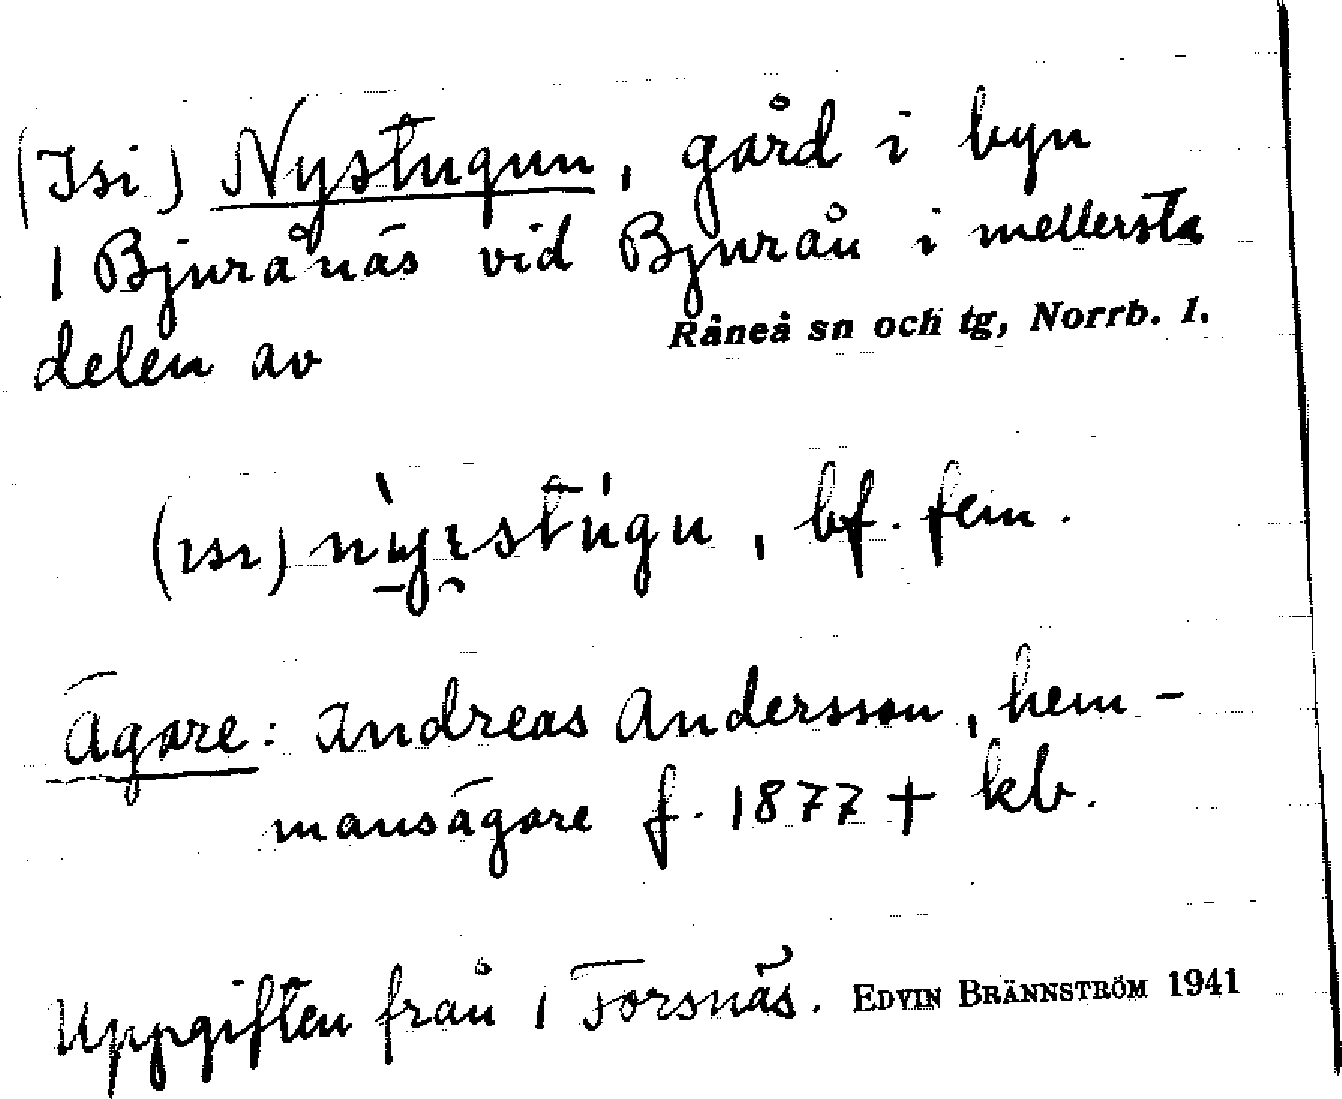 (Isi) Nystugun, gård i byn
/ Bjurånäs vid Bjurån i mellersta
delen av Råneå sn och tg, Norrb. l.
bf. fem.
Ägare: Andreas Andersson, hem-
mansägare f. 1877 + kb.
Uppgiften från / Forsnäs. EDVIN BRÄNNSTRÖM 1941